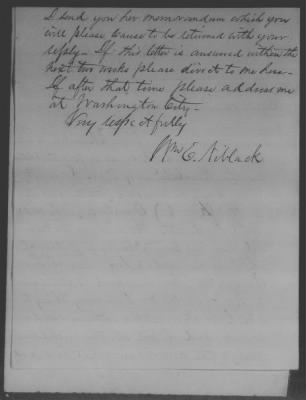 I send you her memorandum which you
will please cause to be returned with your
reply. If this letter is answered within the
next two weeks please direct to me here.
If after that time please address me
at Washington City.
Very respectfully
Wm E. Niblack